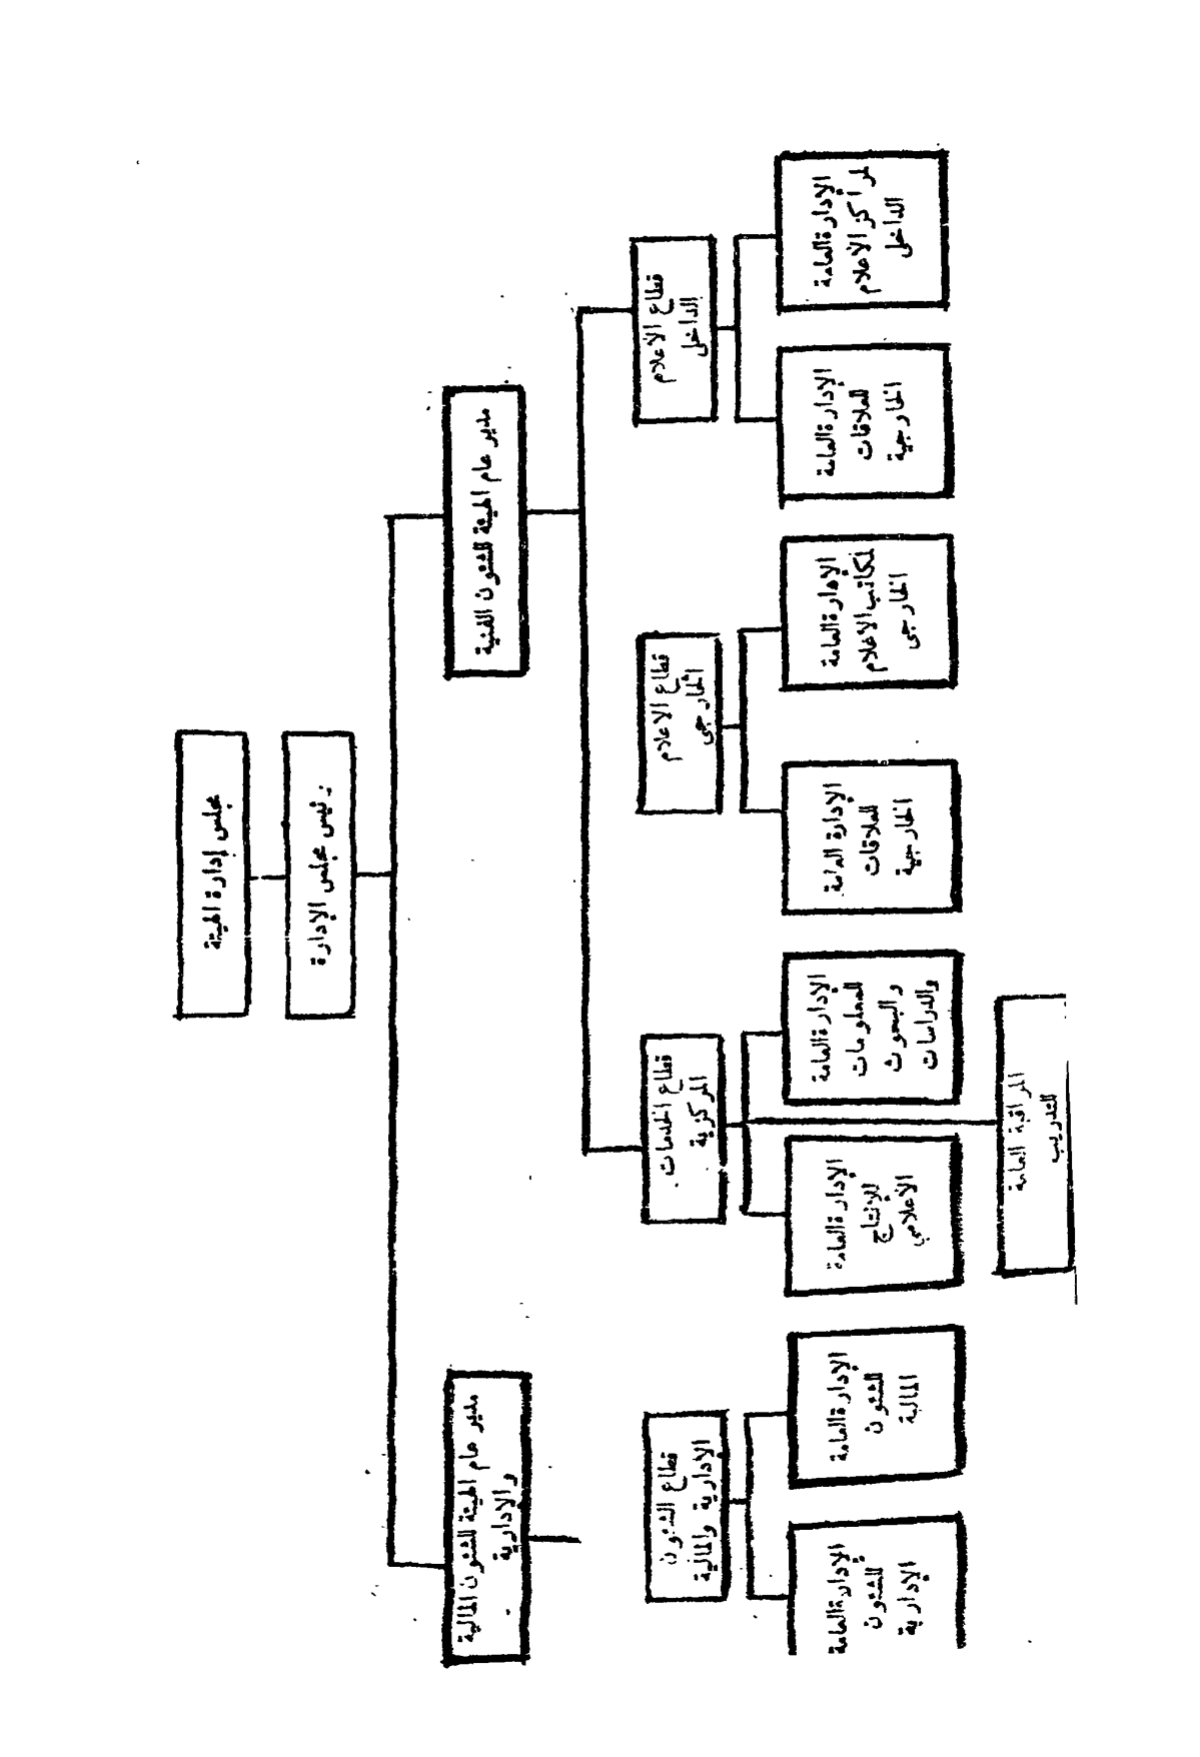 مجلس إدارة الهيئة
رئيس مجلس الإدارة
مدير عام الهيئة للشئون الفنية
مدير عام الهيئة للشئون المالية
والإدارية
قطاع الاعلام
الداخلى
قطاع الاعلام
الخارجى
قطاع الخدمات
المركزية
قطاع الشئون
الإدارية والمالية
الإدارة العامة
لمراكز الاعلام
الداخلى
الإدارة العامة
للعلاقات
الخارجية
الإدارة العامة
لمكاتب الاعلام
الخارجى
الإدارة العامة
للعلاقات
الخارجية
الإدارة العامة
للمعلومات
والبحوث
والدراسات
الإدارة العامة
للإنتاج
الاعلامي
الإدارة العامة
للشئون
المالية
الإدارة العامة
للشئون
الإدارية
المراقبة العامة
للتدريب